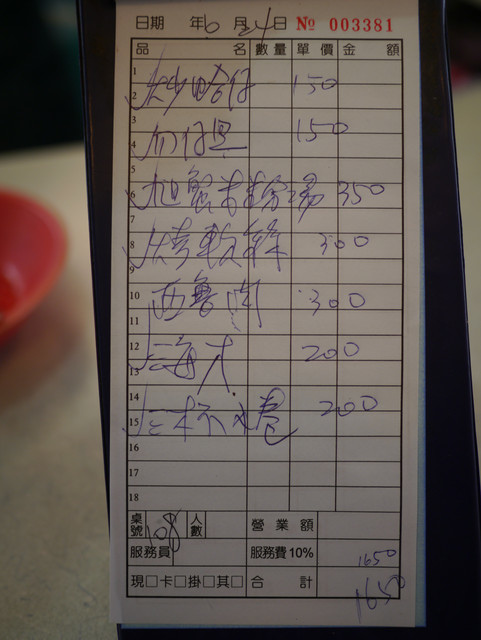 日期 年6月24日 № 003381
品名 數量 單價 金額
1
2 炒蛤仔 150
3
4 150
5
6 旭蟹米粉湯 350
7
8 烤軟絲 300
9
10 西魯肉 300
11
12 200
13
14
15 卷 200
16
17
18
桌號 108 人數 營業額
服務員 服務費10% 1650
現□卡□掛□其□ 合計 1650